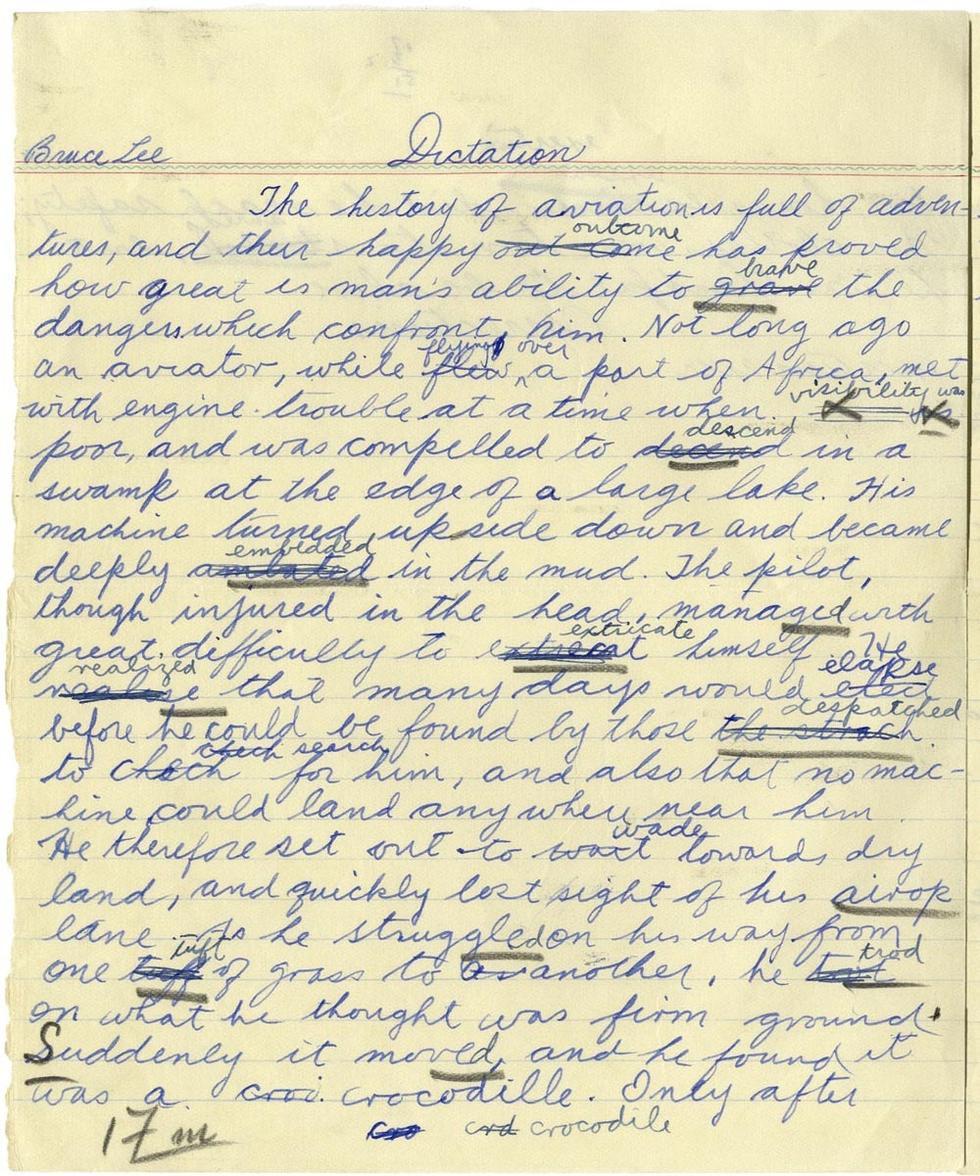 Bruce Lee Dictation
The history of aviation is full of adven-
outcome
tures, and their happy out come has proved
brave
how great is man's ability to grave the
dangers which confront him. Not long ago
flying over
an aviator, while flew a part of Africa, met
visibility was
with engine trouble at a time when is
descend
poor, and was compelled to decend in a
swamp at the edge of a large lake. His
machine turned upside down and became
embedded
deeply in the mud. The pilot,
though injured in the head, managed with
extricate
great difficulty to extrecat himself. He
realized elapse
realise that many days would
despatched
before he could be found by those the strach
check search
to chech for him, and also that no mac-
hine could land any where near him.
wade
He therefore set out to wait towards dry
land, and quickly lost sight of his airop
lane. As he struggled on his way from
tuft trod
one of grass to another, he
on what he thought was firm ground.
Suddenly it moved, and he found it
was a croi. crocodille. Only after
17 m cro crd crocodile